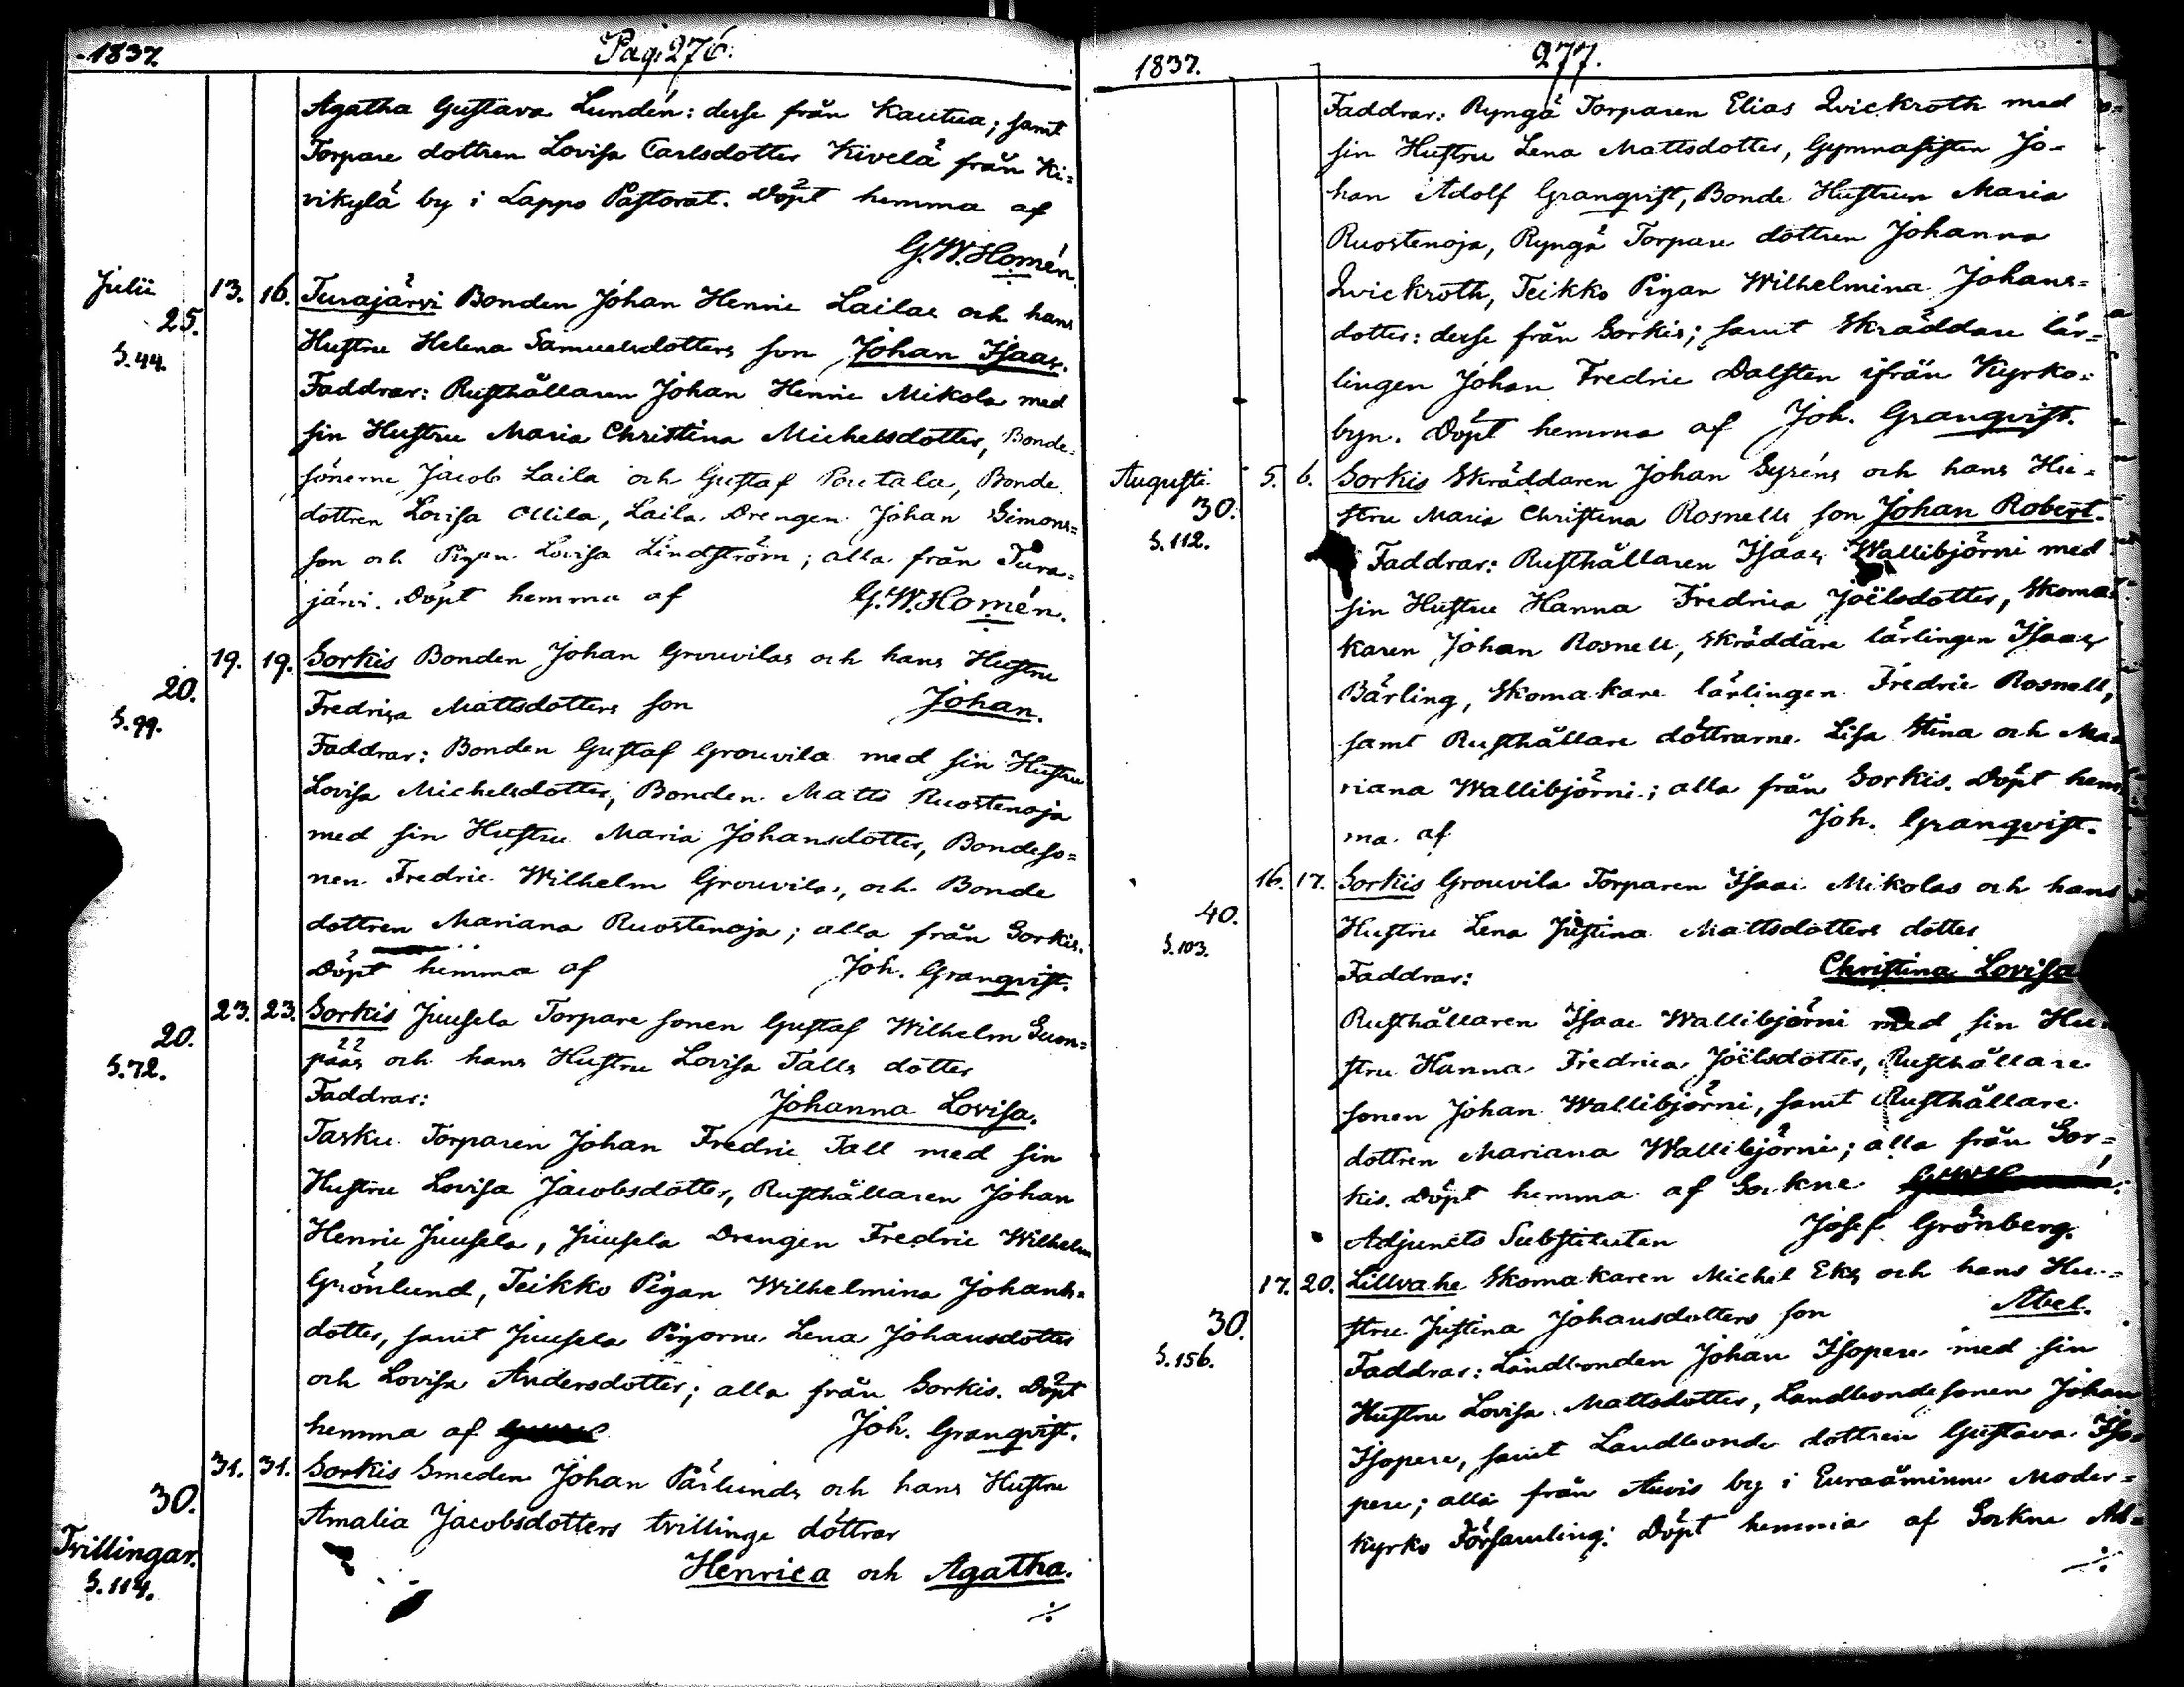 1837. Pag. 276.
Agatha Gustava Lundén: desse från Kautua; samt
Torpare dottren Lovisa Carlsdotter Kivelä från Ki=
vikylä by i Lappo Pastorat. Döpt hemma af
G.W. Homén.
Julii 25. S.44. 13. 16. Turajärvi Bonden Johan Henric Lailas och hans
Hustru Helena Samuelsdotters son Johan Isaac.
Faddrar: Rusthållaren Johan Henric Mikola med
sin Hustru Maria Christina Michelsdotter, Bonde
sönerne Jacob Laila och Gustaf Pautala, Bonde
dottren Lovisa Ollila, Laila Drengen Johan Simons=
son och Pigan Lovisa Lindström; alla från Tura=
järvi. Döpt hemma af G.W. Homén.
20. S.99. 19. 19. Sorkis Bonden Johan Grouvilas och hans Hustru
Fredrica Mattsdotters son Johan.
Faddrar: Bonden Gustaf Grouvila med sin Hustru
Lovisa Michelsdotter, Bonden Matts Ruostenoja
med sin Hustru Maria Johansdotter, Bondeso=
nen Fredric Wilhelm Grouvila, och Bonde
dottren Mariana Ruostenoja; alla från Sorkis.
Döpt hemma af Joh. Granqvist.
20. S.72. 23. 23. Sorkis Juusela Torpare sonen Gustaf Wilhelm Suon=
pääs och hans Hustru Lovisa Talls dotter
Faddrar: Johanna Lovisa.
Tasku Torparen Johan Fredric Tall med sin
Hustru Lovisa Jacobsdotter, Rusthållaren Johan
Henric Juusela, Juusela Drengen Fredric Wilhelm
Grönlund, Teikko Pigan Wilhelmina Johans=
dotter, samt Juusela Pigorne Lena Johansdotter
och Lovisa Andersdotter; alla från Sorkis. Döpt
hemma af Joh. Granqvist.
30. Tvillingar. S.114. 31. 31. Sorkis Smeden Johan Pärlunds och hans Hustru
Amalia Jacobsdotters tvillinge döttrar
Henrica och Agatha.
./.
1837. 277.
Faddrar: Ryngä Torparen Elias Qvickroth med
sin Hustru Lena Mattsdotter, Gymnasisten Jo=
han Adolf Granqvist, Bonde Hustrun Maria
Ruostenoja, Ryngä Torpare dottren Johanna
Qvickroth, Teikko Pigan Wilhelmina Johans=
dotter: desse från Sorkis; samt Skräddare lär=
lingen Johan Fredric Dalsten ifrån Kyrko=
byn. Döpt hemma af Joh. Granqvist.
Augusti 30. S.112. 5. 6. Sorkis Skräddaren Johan Syréns och hans Hu=
stru Maria Christina Rosnells son Johan Robert.
Faddrar: Rusthållaren Isaac Wallibjörni med
sin Hustru Hanna Fredrica Joëlsdotter, Skoma=
karen Johan Rosnell, Skräddare lärlingen Isaac
Bärling, Skomakare lärlingen Fredric Rosnell,
samt Rusthållare döttrarne Lisa Stina och Ma=
riana Wallibjörni; alla från Sorkis. Döpt hem
ma af Joh. Granqvist.
40. S.103. 16. 17. Sorkis Grouvila Torparen Isaac Mikolas och hans
Hustru Lena Justina Mattsdotters dotter
Faddrar: Christina Lovisa
Rusthållaren Isaac Wallibjörni med sin Hu=
stru Hanna Fredrica Joëlsdotter, Rusthållare
sonen Johan Wallibjörni, samt Rusthållare
dottren Mariana Wallibjörni; alla från Sor=
kis. Döpt hemma af Sockne
Adjuncts Substituten Josef Grönberg.
30. S.156. 17. 20. Lillvahe Skomakaren Michel Eks och hans Hu=
stru Justina Johansdotters son Abel.
Faddrar: Landbonden Johan Isopere med sin
Hustru Lovisa Mattsdotter, Landbondesonen Johan
Isopere, samt Landbonde dottren Gustava Iso=
pere; alla från Auvis by i Euraåminne Moder=
kyrko Församling: Döpt hemma af Sockne Ad=
./.